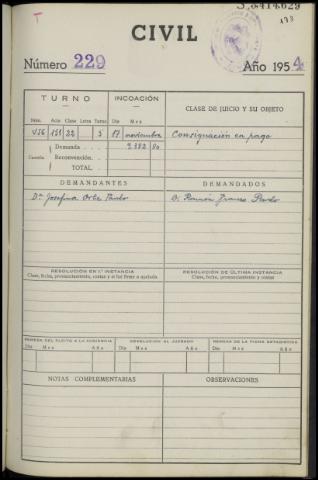 CIVIL
Número 229 Año 1954
TURNO INCOACIÓN CLASE DE JUICIO Y SU OBJETO
Núm. Acto Clase Letra Turno Día Mes
151 22 5 17 noviembre Consignación en pago
Cuantía Demanda 9.382 80
Reconvención.
TOTAL.
DEMANDANTES DEMANDADOS
Dª Josefina D. Ramón Franco
RESOLUCIÓN EN 1.ª INSTANCIA RESOLUCIÓN DE ÚLTIMA INSTANCIA
Clase, fecha, pronunciamiento, costas y si fué firme o apelada Clase, fecha, pronunciamiento y costas
REMESA DEL PLEITO A LA AUDIENCIA DEVOLUCIÓN AL JUZGADO REMESA DE LA FICHA ESTADÍSTICA
Día Mes Año Día Mes Año Día Mes Año
NOTAS COMPLEMENTARIAS OBSERVACIONES